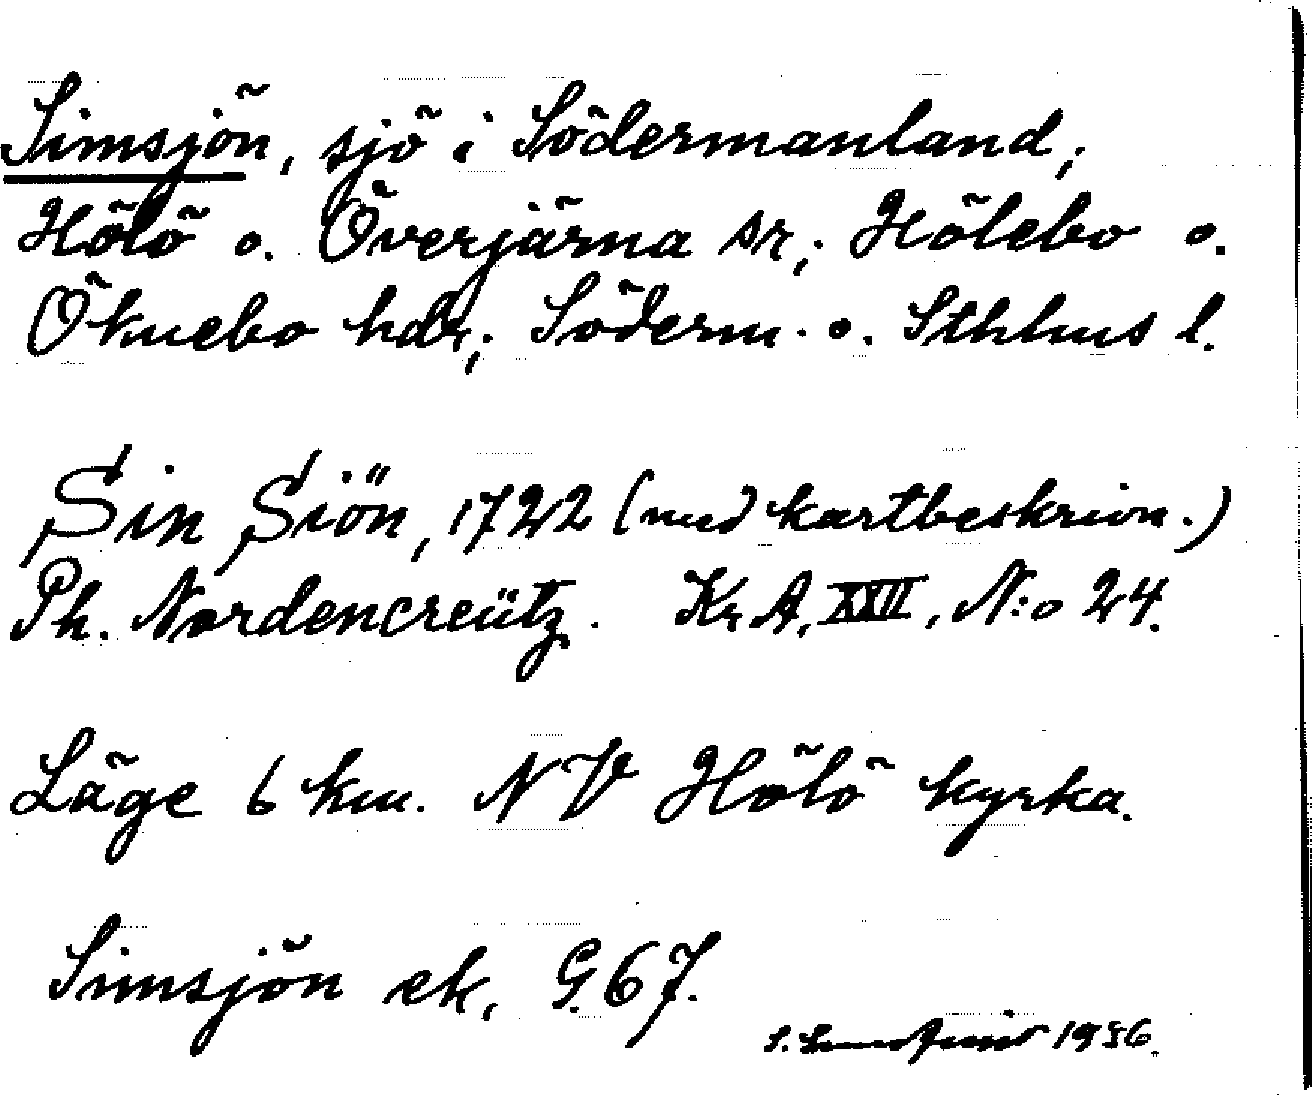 Simsjön, sjö i Södermanland;
Hölö o. Överjärna sr; Hölebo o.
Öknebo hdr; Söderm. o. Sthlms l.
Sin Siön, 1722 (med kartbeskrivn.)
Ph. Nordencreütz. Kr. A, XXII, N:o 24.
Läge 6 km. NV Hölö kyrka.
Simsjön ek, G. 67.
S. 1936.